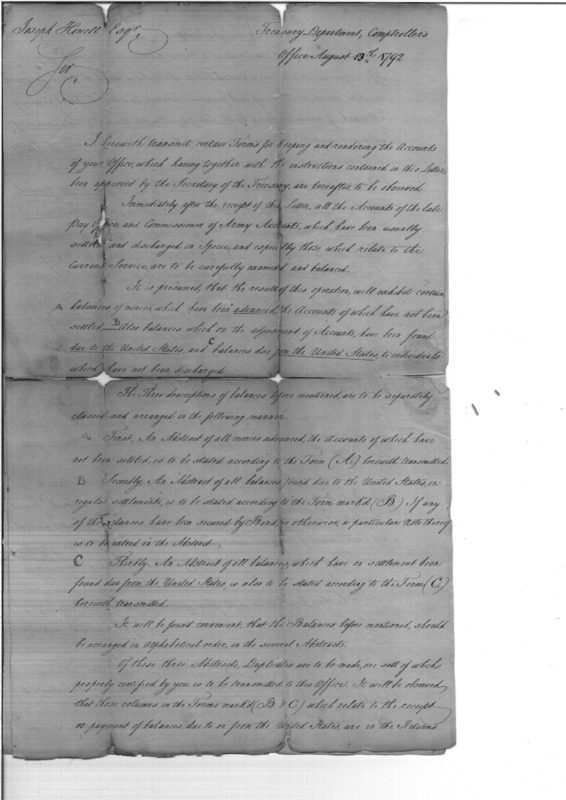 Joseph Howell Esqr.
Treasury Department, Comptrollers
Office August 13th. 1792.
Sir
I herewith transmit certain Forms for keeping and rendering the Accounts
of your Office, which having together with the instructions contained in this Letter
been approved by the Secretary of the Treasury, are hereafter to be observed.
Immediately after the receipt of this Letter, all the Accounts of the late
Pay Office, and Commissioner of Army Accounts, which have been usually
settled and discharged in Specie, and especially those which relate to the
Current Service, are to be carefully examined and balanced.
It is presumed, that the result of this operation, will exhibit certain
a balances of monies, which have been advanced, the Accounts of which have not been
settled, B Also balances which on the adjustment of Accounts, have been found
due to the United States, and C balances due from the United States, to individuals
which have not been discharged.
The Three descriptions of balances before mentioned, are to be separately
classed and arranged in the following manner.
a First, An Abstract of all monies advanced, the Accounts of which have
not been settled, is to be stated according to the Form (A.) herewith transmitted.
B Secondly. An Abstract of all balances found due to the United States, on
regular settlements, is to be stated according to the Form markd (B.) If any
of the balances have been secured by Bond, or otherwise, a particular Note thereof
is to be entered in the Abstract.
C Thirdly. An Abstract of all balances, which have on settlement been
found due from the United States, is also to be stated according to the Form (C.)
herewith transmitted.
It will be found convenient, that the Balances before mentioned, should
be arranged in alphabetical order, in the several Abstracts.
Of these three Abstracts, Duplicates are to be made, one sett of which
properly certified by you is to be transmitted to this Office. It will be observed
that those columns in the Forms markd (B & C) which relate to the receipt
or payment of balances, due to or from the United States, are in the Returns